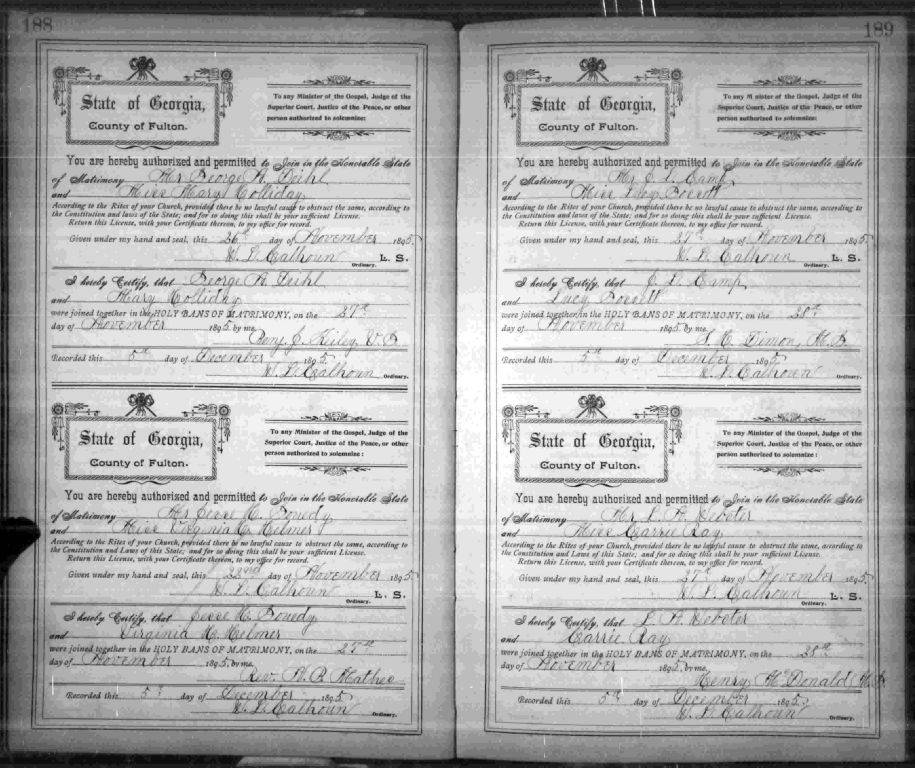 188
State of Georgia,
County of Fulton.
To any Minister of the Gospel, Judge of the
Superior Court, Justice of the Peace, or other
person authorized to solemnize:
You are hereby authorized and permitted to Join in the Honorable State
of Matrimony Mr George A. Diehl
and Miss Mary Holliday
According to the Rites of your Church, provided there be no lawful cause to obstruct the same, according to
the Constitution and laws of the State; and for so doing this shall be your sufficient License.
Return this License, with your Certificate thereon, to my office for record.
Given under my hand and seal, this 26th day of November 1895
W. L. Calhoun L. S.
Ordinary.
I hereby Certify, that George A. Diehl
and Mary Holliday
were joined together in the HOLY BANS OF MATRIMONY, on the 27th
day of November 1895 by me.
Benj. J. Keiley, V. G.
Recorded this 5th day of December 1895
W. L. Calhoun Ordinary.
State of Georgia,
County of Fulton.
To any Minister of the Gospel, Judge of the
Superior Court, Justice of the Peace, or other
person authorized to solemnize:
You are hereby authorized and permitted to Join in the Honorable State
of Matrimony Mr Jesse
and Miss Virginia Helmer
According to the Rites of your Church, provided there be no lawful cause to obstruct the same, according to
the Constitution and Laws of this State; and for so doing this shall be your sufficient License.
Return this License, with your Certificate thereon, to my office for record.
Given under my hand and seal, this day of November 1895
W. L. Calhoun L. S.
Ordinary.
I hereby Certify, that Jesse
and Virginia Helmer
were joined together in the HOLY BANS OF MATRIMONY, on the
day of November 1895, by me,
Rev.
Recorded this 5th day of December 1895
W. L. Calhoun Ordinary.
189
State of Georgia,
County of Fulton.
To any Minister of the Gospel, Judge of the
Superior Court, Justice of the Peace, or other
person authorized to solemnize:
You are hereby authorized and permitted to Join in the Honorable State
of Matrimony Mr J. L. Camp
and Miss Lucy
According to the Rites of your Church, provided there be no lawful cause to obstruct the same, according to
the Constitution and laws of the State; and for so doing this shall be your sufficient License.
Return this License, with your Certificate thereon, to my office for record.
Given under my hand and seal, this 27th day of November 1895
W. L. Calhoun L. S.
Ordinary.
I hereby Certify, that J. L. Camp
and Lucy
were joined together in the HOLY BANS OF MATRIMONY, on the 28th
day of November 1895 by me.
Recorded this 5th day of December 1895
W. L. Calhoun Ordinary.
State of Georgia,
County of Fulton.
To any Minister of the Gospel, Judge of the
Superior Court, Justice of the Peace, or other
person authorized to solemnize:
You are hereby authorized and permitted to Join in the Honorable State
of Matrimony Mr. L. A. Webster
and Miss Carrie Ray
According to the Rites of your Church, provided there be no lawful cause to obstruct the same, according to
the Constitution and Laws of this State; and for so doing this shall be your sufficient License.
Return this License, with your Certificate thereon, to my office for record.
Given under my hand and seal, this 27th day of November 1895
W. L. Calhoun L. S.
Ordinary.
I hereby Certify, that L. A. Webster
and Carrie Ray
were joined together in the HOLY BANS OF MATRIMONY, on the 28th
day of November 1895 by me,
Henry McDonald M. G.
Recorded this 5th day of December 1895
W. L. Calhoun Ordinary.